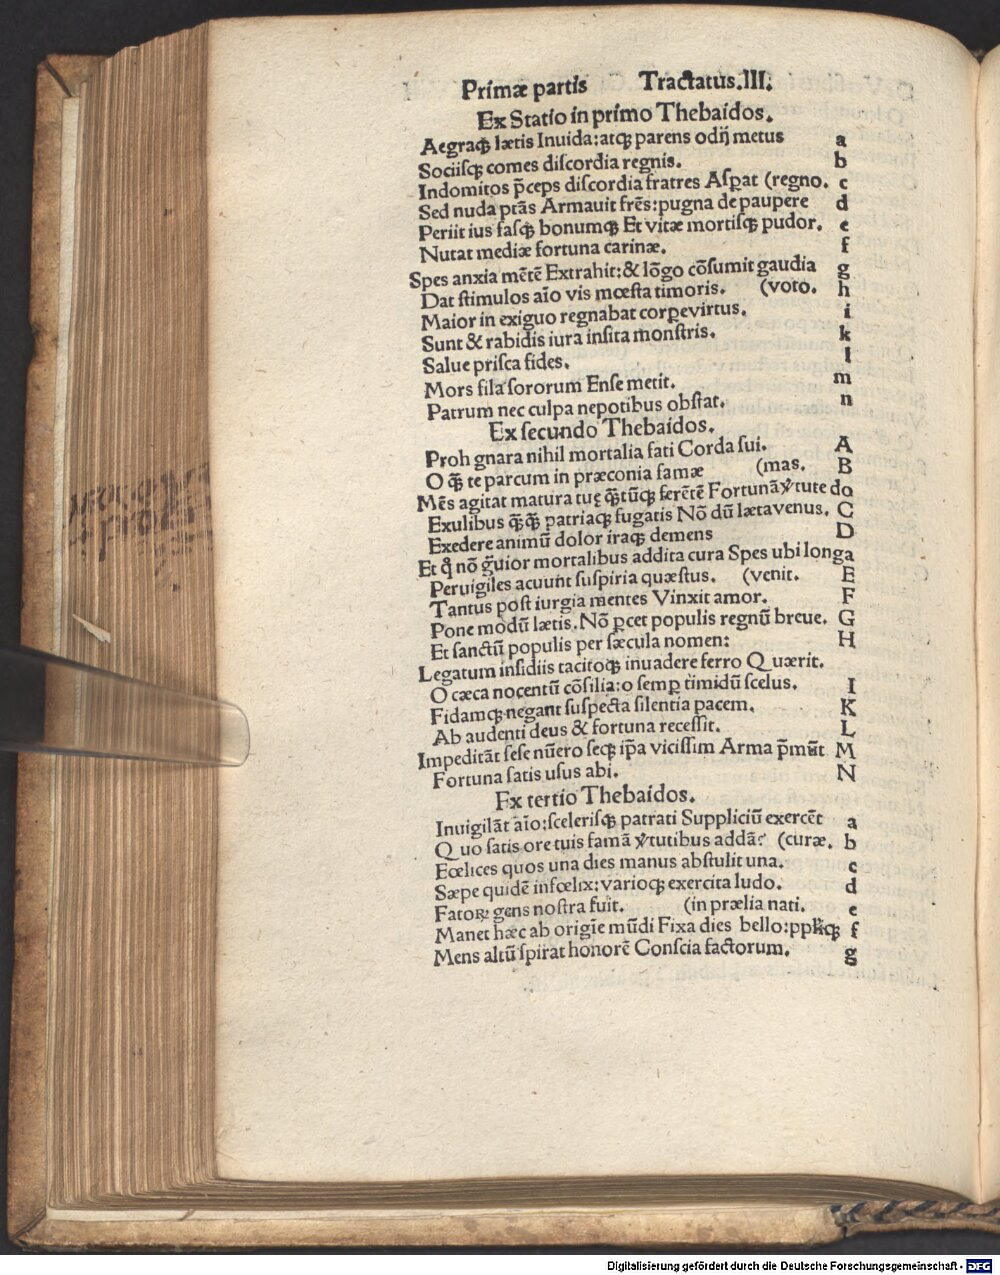 Primæ partis Tractatus.III.
Ex Statio in primo Thebaidos.
Aegraq; lætis Inuida:atq; parens odij metus a
Sociisq; comes discordia regnis. b
Indomitos p̃ceps discordia fratres Aspat (regno. c
Sed nuda ptãs Armauit frẽs:pugna de paupere d
Periit ius fasq; bonumq; Et vitæ mortisq; pudor. e
Nutat mediæ fortuna carinæ. f
Spes anxia mẽtẽ Extrahit:& lõgo cõsumit gaudia g
Dat stimulos aĩo vis mœsta timoris. (voto. h
Maior in exiguo regnabat corpe virtus. i
Sunt & rabidis iura insita monstris. k
Salue prisca fides. l
Mors fila sororum Ense metit. m
Patrum nec culpa nepotibus obstat. n
Ex secundo Thebaidos.
Proh gnara nihil mortalia fati Corda sui. A
O q̃ te parcum in præconia famæ (mas. B
Mẽs agitat matura tuę q̃tũq; ferẽtẽ Fortunã v̾tute do
Exulibus q̃q̃ patriaq; fugatis Nõ dũ læta venus. C
Exedere animũ dolor iraq; demens D
Et q̃ nõ g̃uior mortalibus addita cura Spes ubi longa
Peruigiles acuunt suspiria quæstus. (venit. E
Tantus post iurgia mentes Vinxit amor. F
Pone modũ lætis. Nõ ꝑcet populis regnũ breue. G
Et sanctũ populis per sæcula nomen: H
Legatum insidiis tacitoq; inuadere ferro Quærit.
O cæca nocentũ cõsilia:o semꝑ timidũ scelus. I
Fidamq; negant suspecta silentia pacem. K
Ab audenti deus & fortuna recessit. L
Impeditãt sese nũero seq; ip̃a vicissim Arma p̃mũt M
Fortuna satis usus abi. N
Ex tertio Thebaidos.
Inuigilãt aĩo:scelerisq; patrati Suppliciũ exercẽt a
Quo satis ore tuis famã v̾tutibus addã? (curæ. b
Fœlices quos una dies manus abstulit una. c
Sæpe quidẽ infœlix:varioq; exercita ludo. d
Fatoꝝ gens nostra fuit. (in prælia nati. e
Manet hæc ab origĩe mũdi Fixa dies bello:pplĩq; f
Mens altũ spirat honorẽ Conscia factorum. g
Digitalisierung gefördert durch die Deutsche Forschungsgemeinschaft - DFG